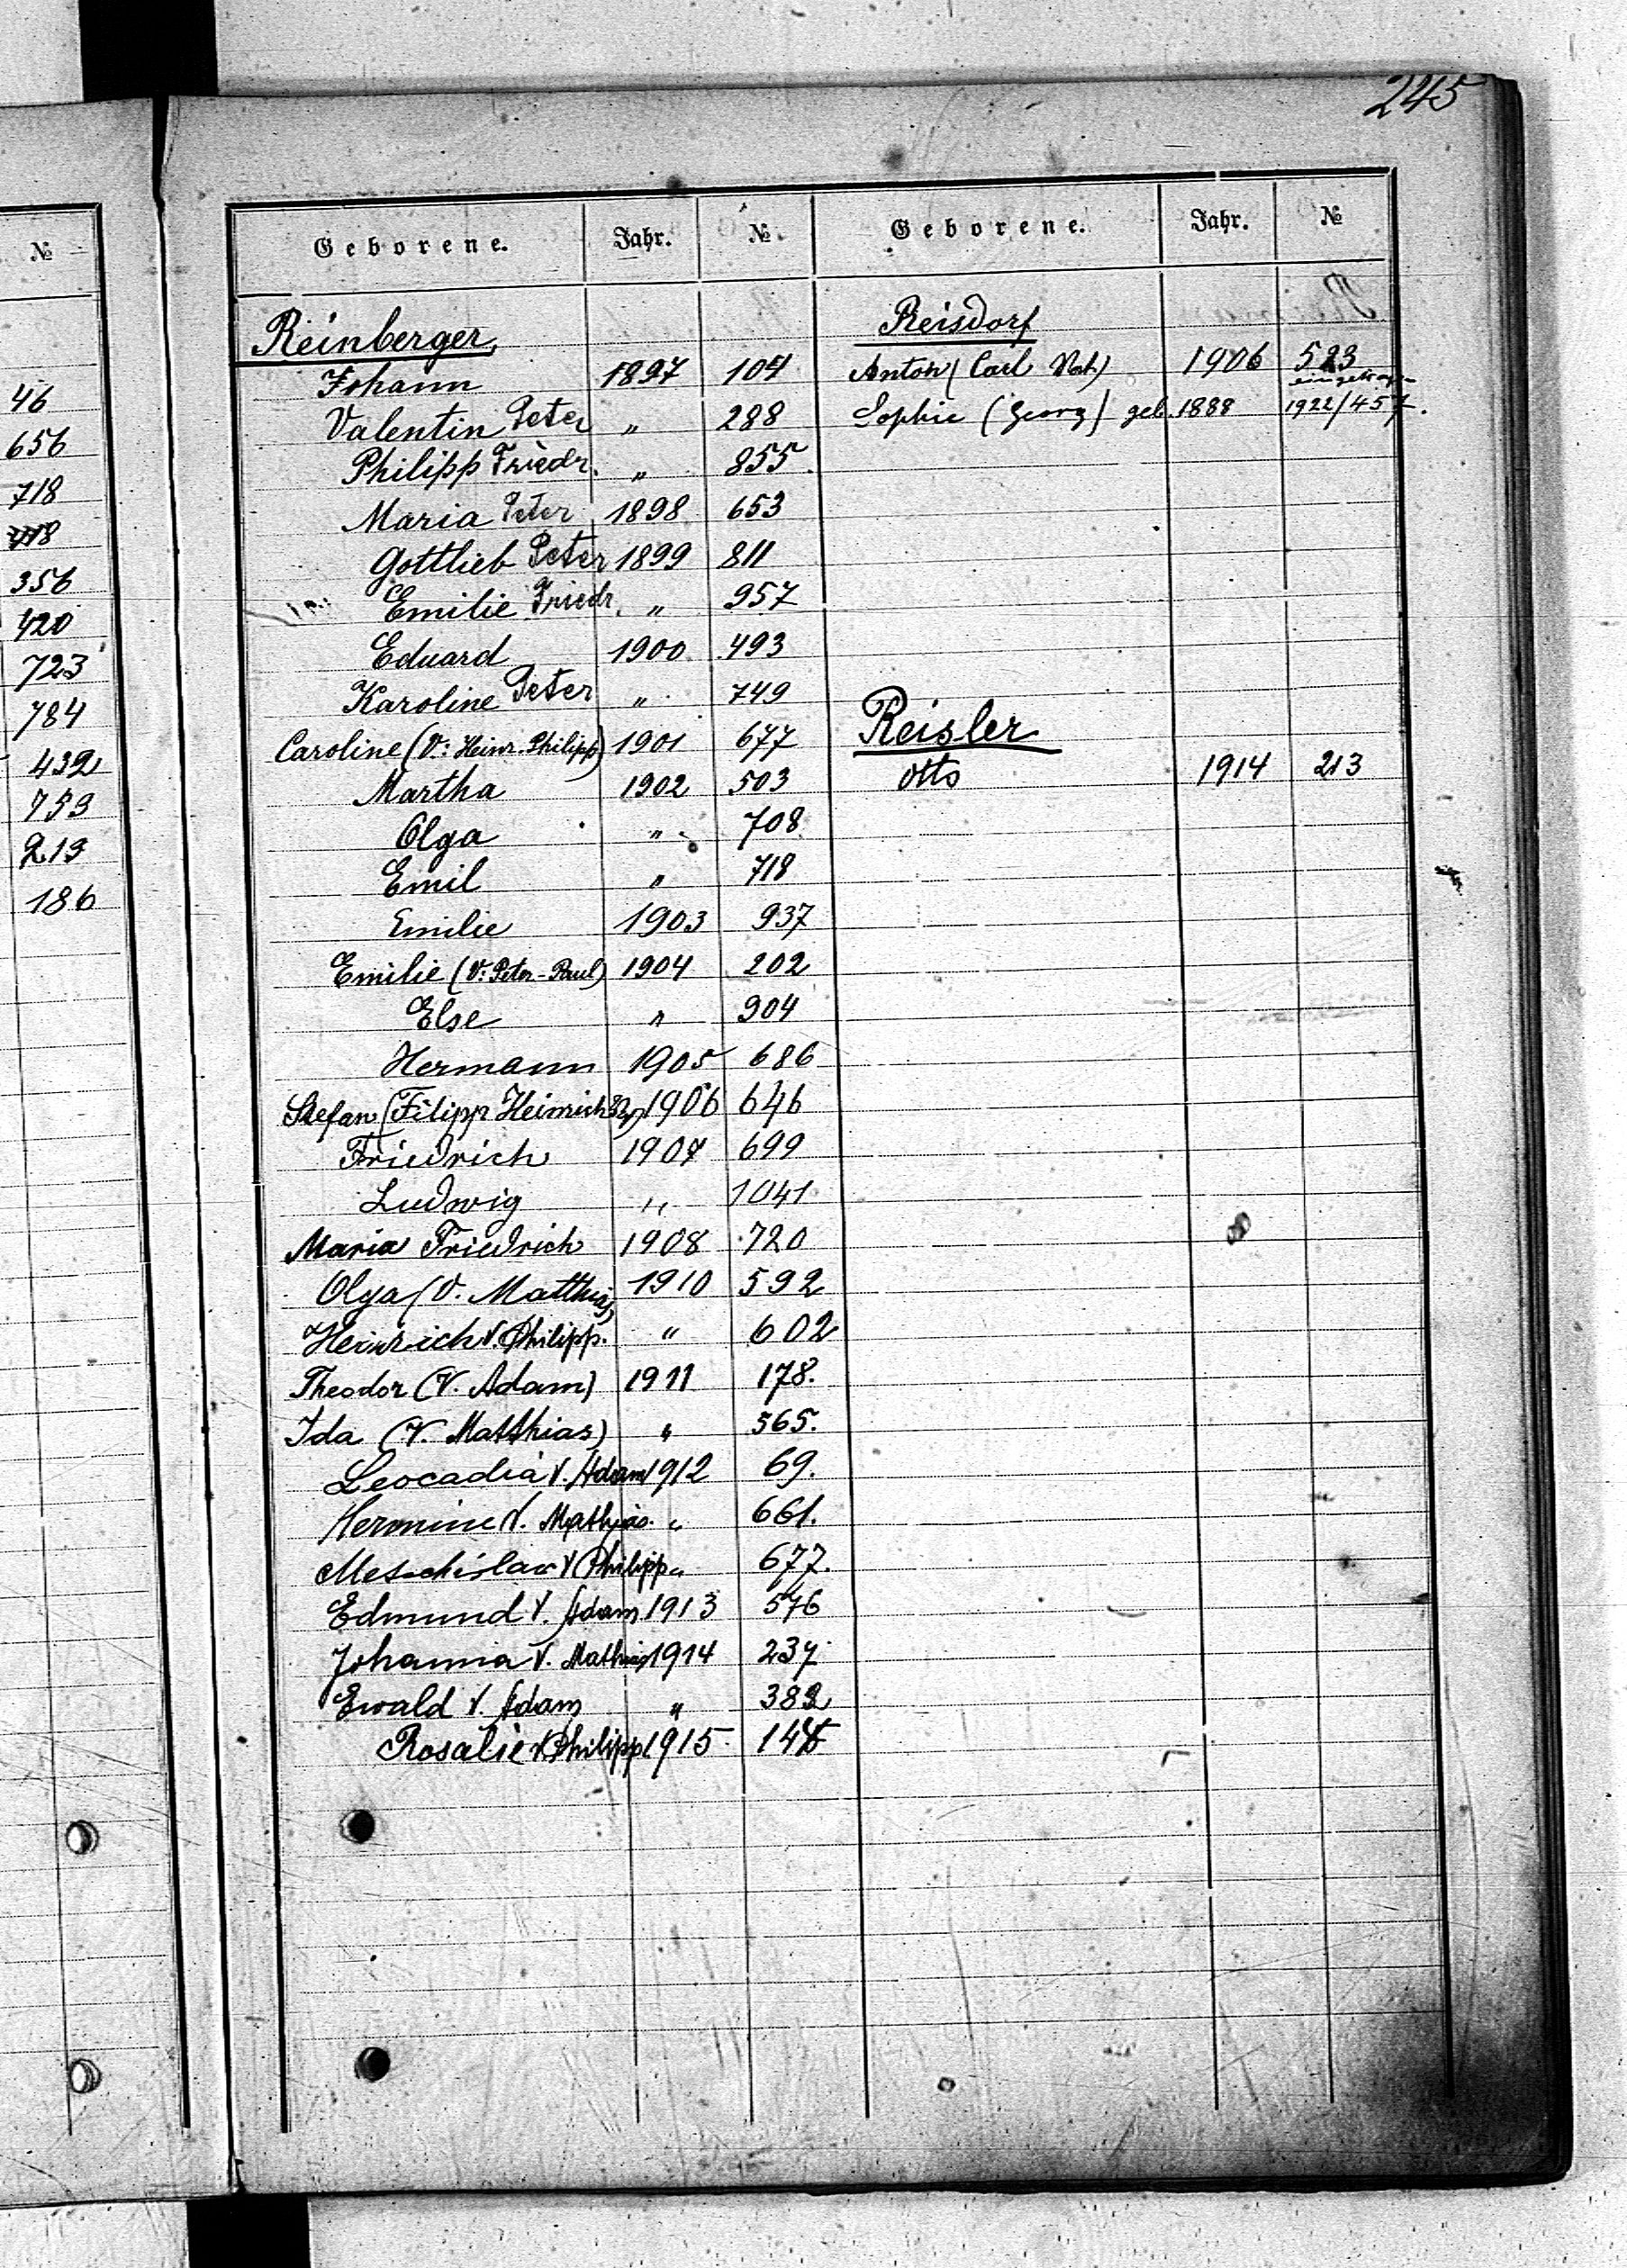 245
№
46
656
718
718
356
420
723
784
432
753
213
186
Geborene. Jahr. №
Reinberger,
Johann 1897 104
Valentin Peter " 288
Philipp Friedr. " 855
Maria Peter 1898 653
Gottlieb Peter 1899 811
Emilie Friedr. " 957
Eduard 1900 493
Karoline Peter " 749
Caroline (V: Heinr. Philipp) 1901 677
Martha 1902 503
Olga " 708
Emil " 718
Emilie 1903 937
Emilie (V: Peter-Paul) 1904 202
Else " 904
Hermann 1905 686
Stefan (Filipp Heinrich 1906 646
Friedrich 1907 699
Ludwig " 1041
Maria Friedrich 1908 720
Olga (V. Matthias) 1910 592
Heinrich V. Philipp. " 602
Theodor (V. Adam) 1911 178.
Ida (V. Matthias) " 565.
Leocadia V. Adam 1912 69.
Hermine V. Mathias. " 661.
Meschislaw V Philipp " 677.
Edmund V. Adam 1913 576
Johanna V. Mathias 1914 237
Ewald V. Adam " 382
Rosalie V. Philipp 1915 144
Geborene. Jahr. №
Reisdorf
Anton (Carl 1906 523
eingetragen
Sophie (Georg) geb. 1888 1922/457.
Reisler
Otto 1914 213